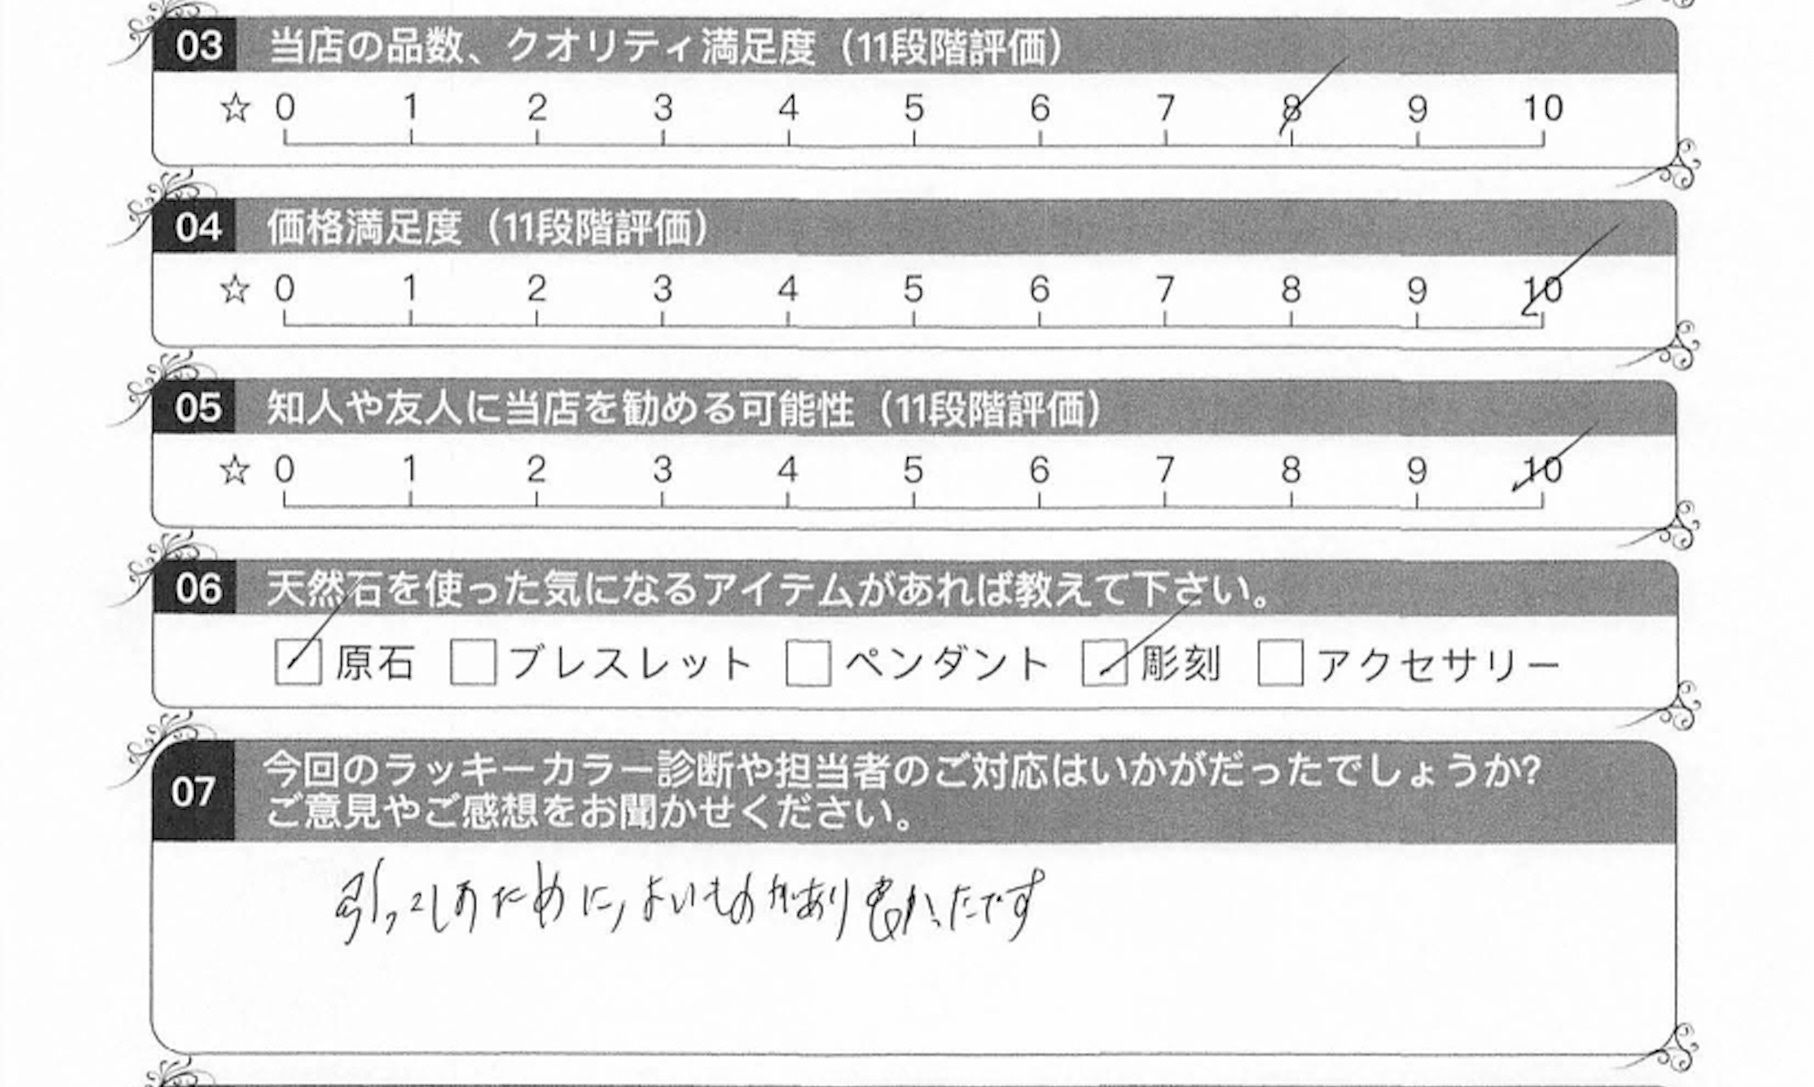 03 当店の品数、クオリティ満足度（11段階評価）
☆ 0 1 2 3 4 5 6 7 8 9 10
04 価格満足度（11段階評価）
☆ 0 1 2 3 4 5 6 7 8 9 10
05 知人や友人に当店を勧める可能性（11段階評価）
☆ 0 1 2 3 4 5 6 7 8 9 10
06 天然石を使った気になるアイテムがあれば教えて下さい。
原石 ブレスレット ペンダント 彫刻 アクセサリー
07 今回のラッキーカラー診断や担当者のご対応はいかがだったでしょうか?
ご意見やご感想をお聞かせください。
引っこしのために、よいものがあり良かったです